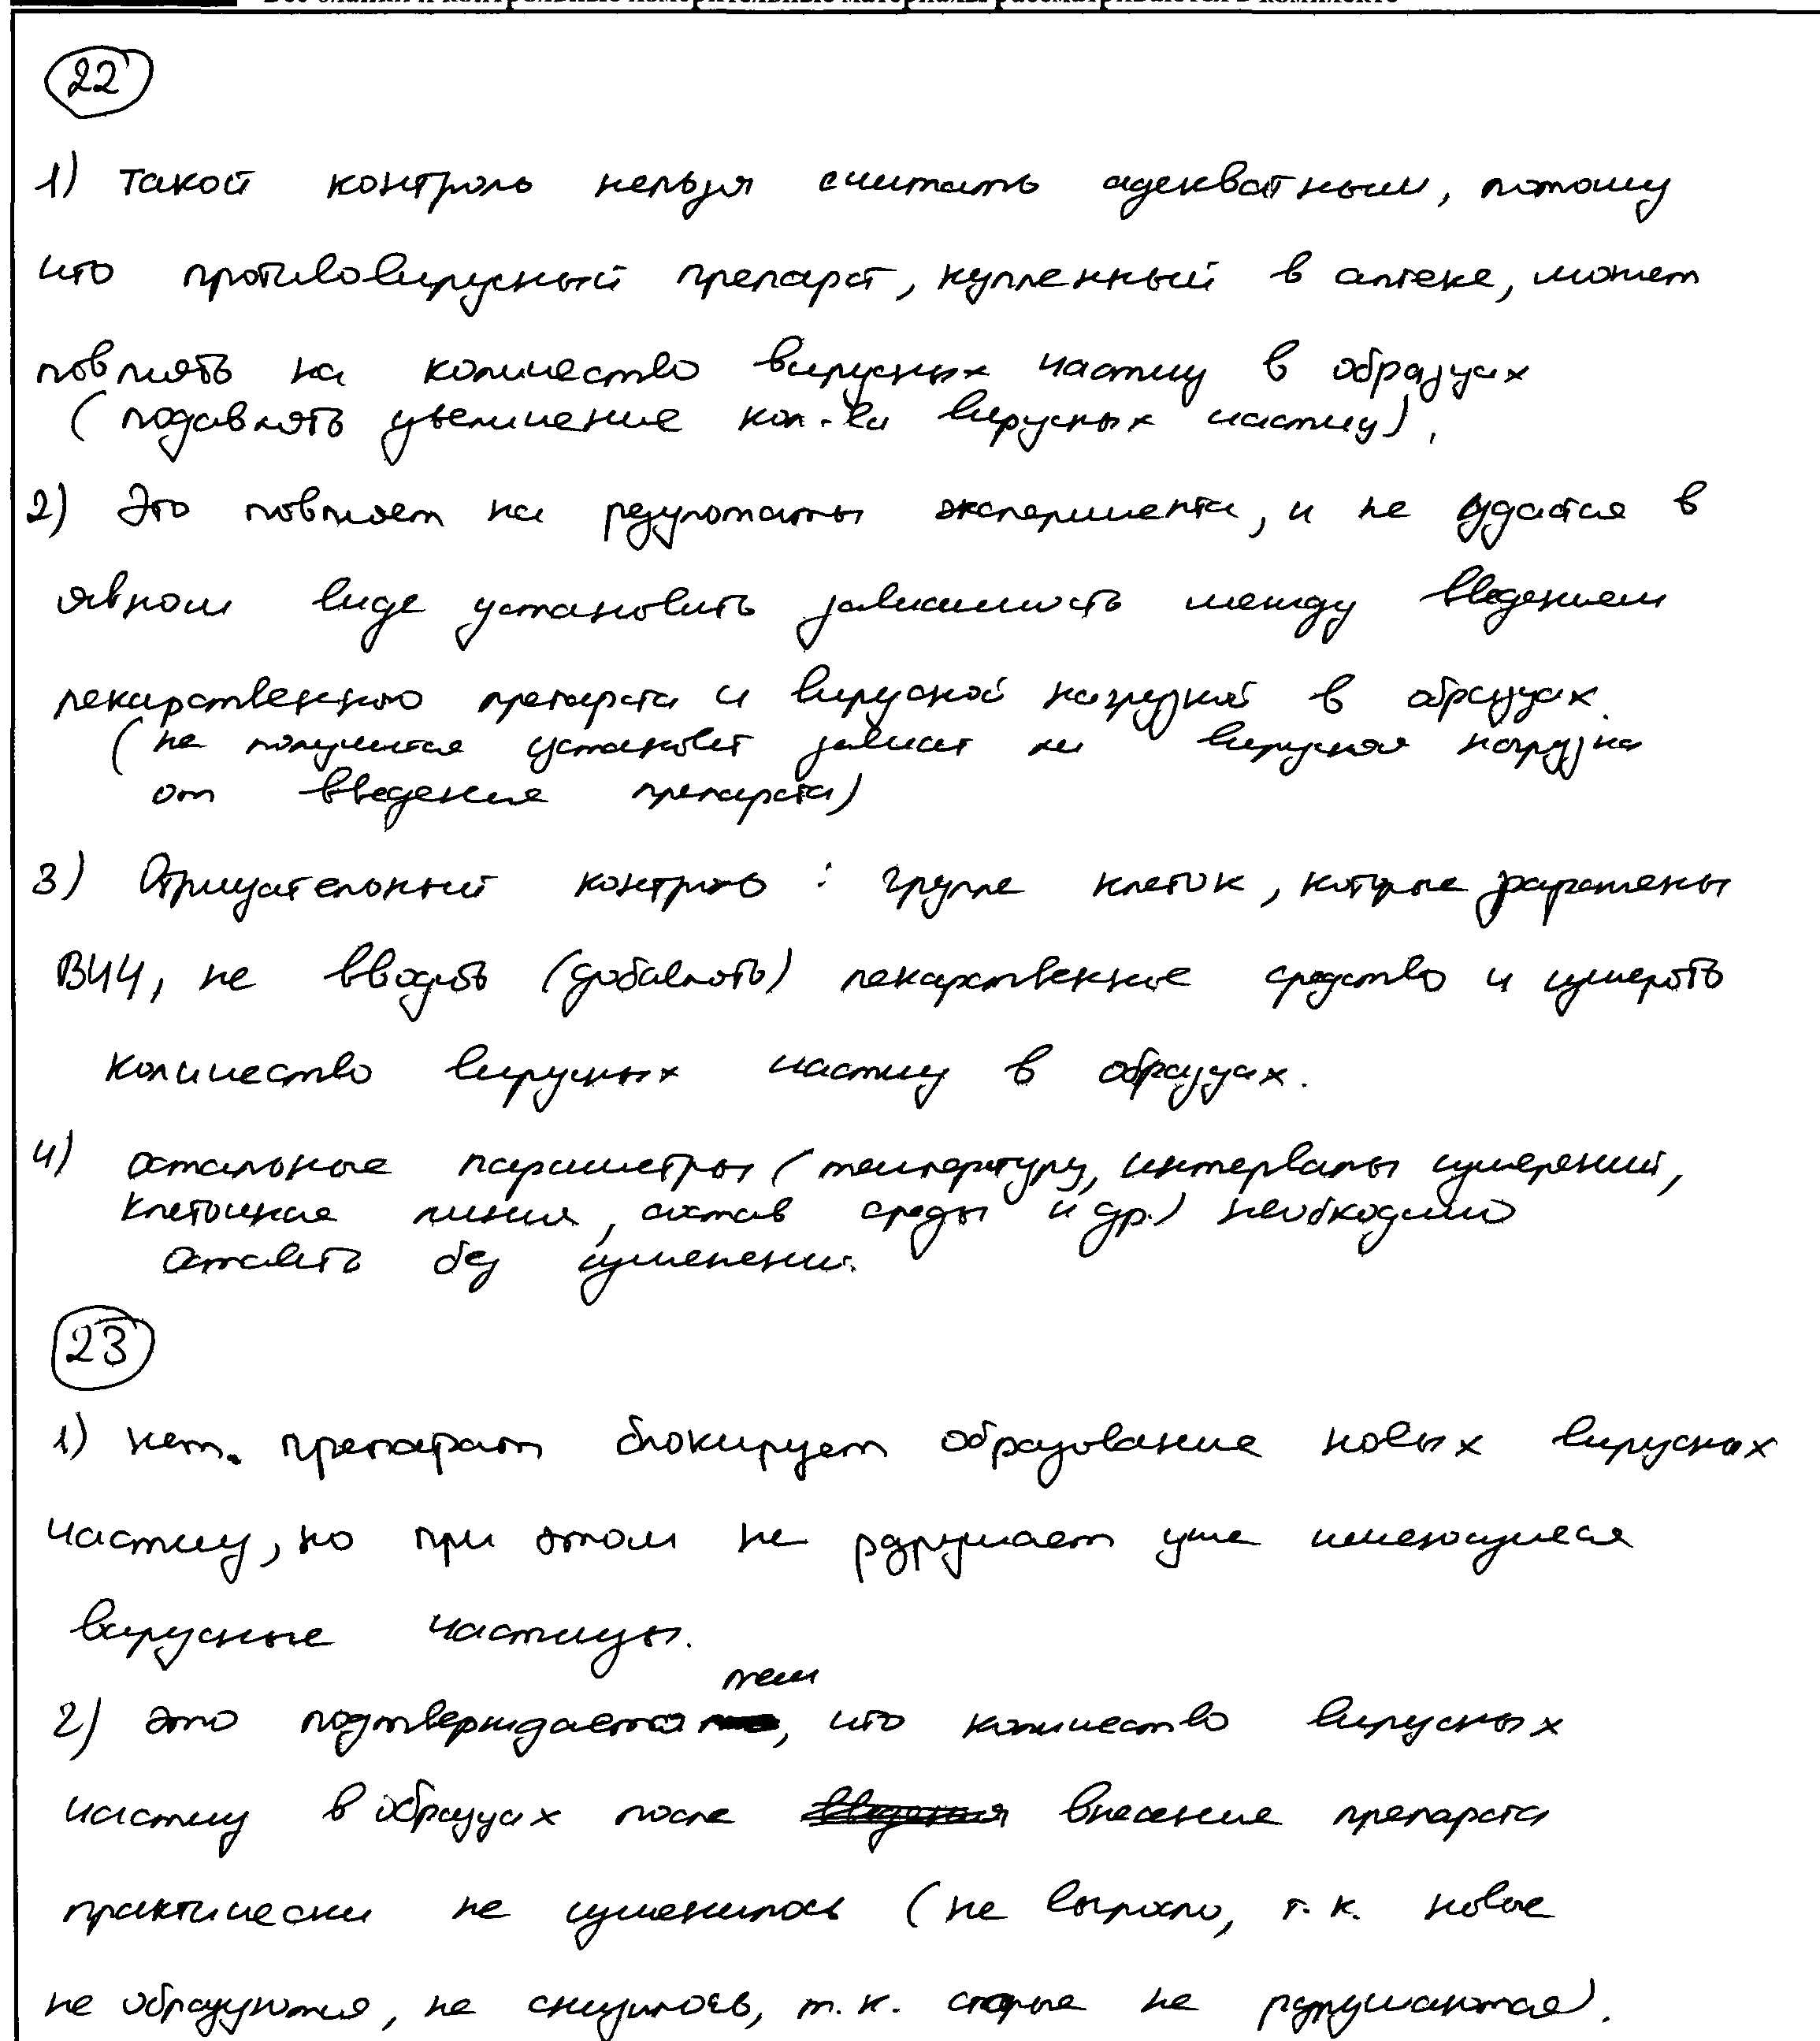 Все бланки и контрольные измерительные материалы рассматриваются в комплекте
22
1) Такой контроль нельзя считать адекватным, потому
что противовирусный препарат, купленный в аптеке, может
повлиять на количество вирусных частиц в образцах
(подавлять увеличение кол-ва вирусных частиц).
2) Это повлияет на результаты эксперимента, и не удастся в
явном виде установить зависимость между введением
лекарственного препарата и вирусной нагрузкой в образцах.
(не получится установить зависит ли вирусная нагрузка
от введения препарата)
3) Отрицательный контроль: группе клеток, которые заражены
ВИЧ, не вводить (добавлять) лекарственное средство и измерять
количество вирусных частиц в образцах.
4) остальные параметры (температуру, интервалы измерений,
клеточная линия, состав среды и др.) необходимо
оставить без изменений.
23
1) нет. препарат блокирует образование новых вирусных
частиц, но при этом не разрушает уже имеющиеся
вирусные частицы.
2) это подтверждается тем, что количество вирусных
частиц в образцах после введения внесения препарата
практически не изменилось (не выросло, т.к. новые
не образуются, не снизилось, т.к. старые не разрушаются).